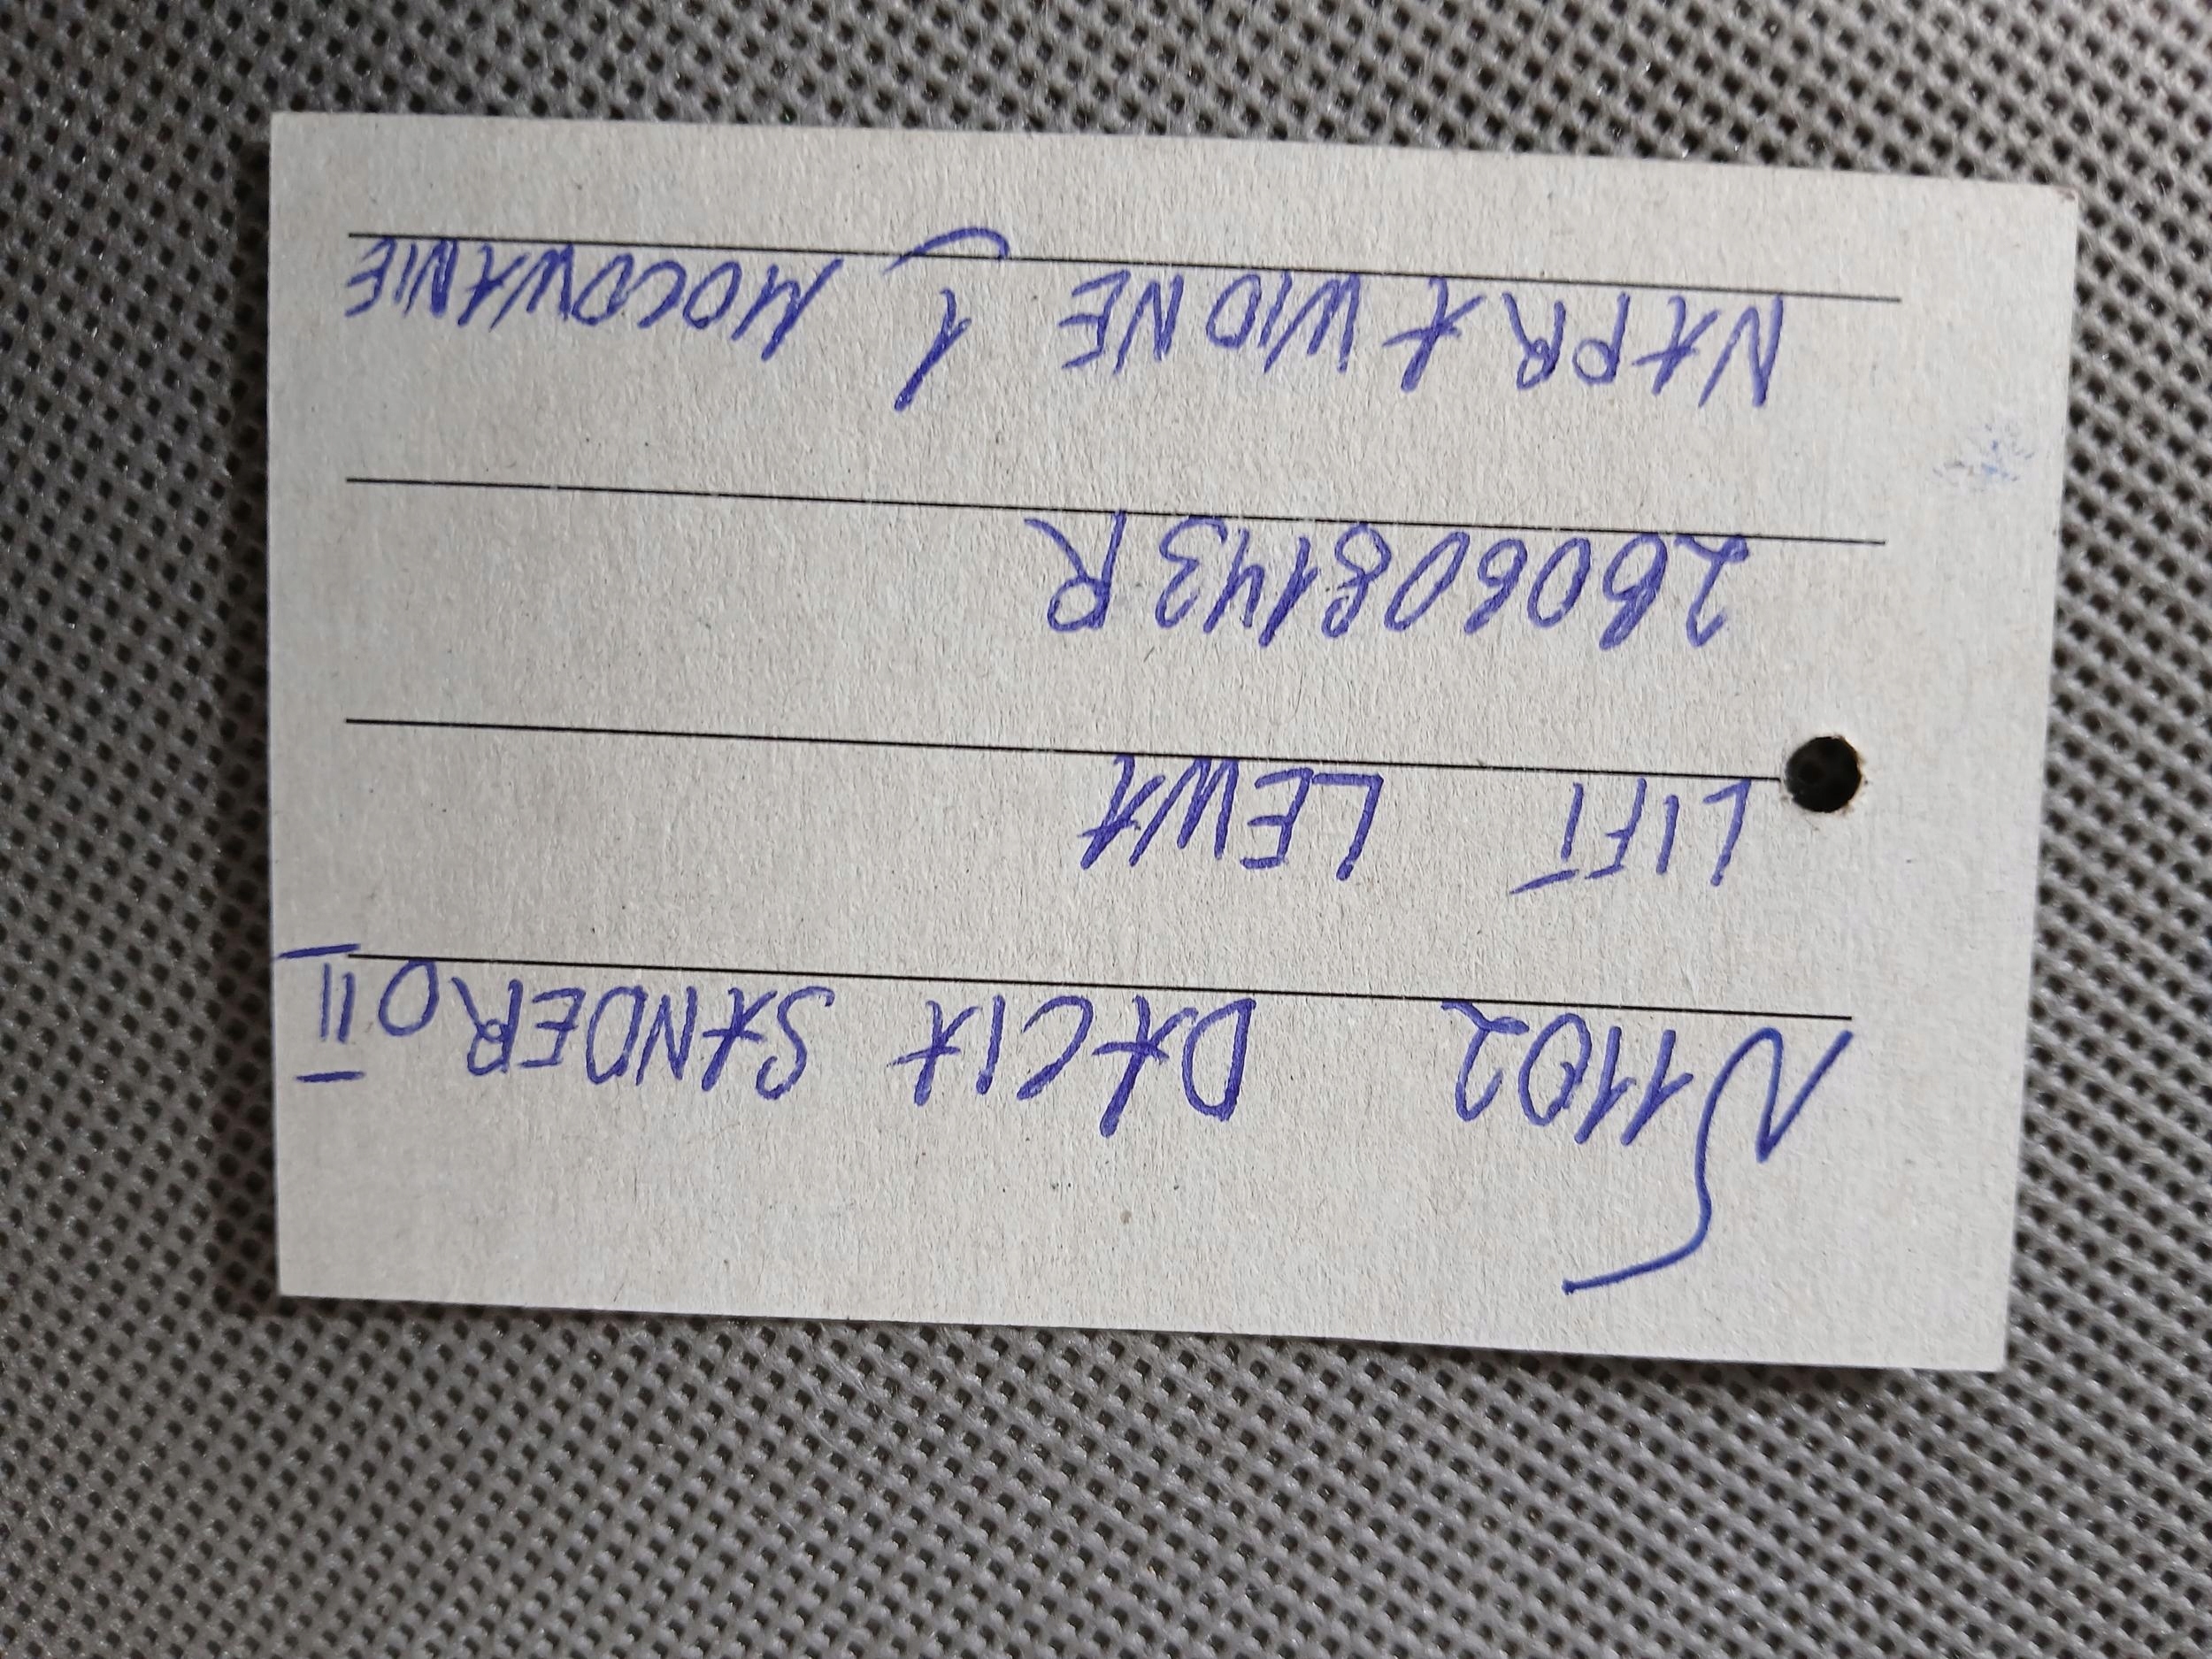 N1102 DACIA SANDERO II
LIFT LEWA
260608143R
NAPRAWIONE 1 MOCOWANIE